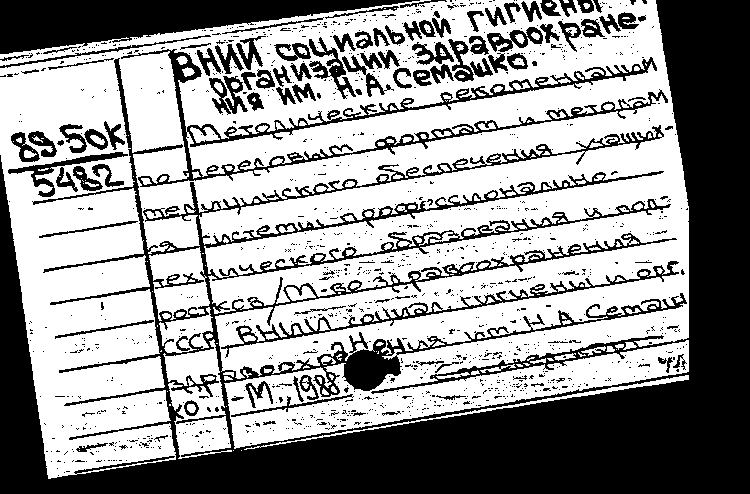 ВНИИ социальной гигиены и
организации здравоохране-
ния им. Н.А.Семашко.
89-50К
5482
Методические рекомендации
по передовым формам и методам
медицинского обеспечения учащих-
ся системы профессионально-
технического образования и под-
ростков / М-во здравоохранения
СССР, ВНИИ социал. гигиены и орг.
здравоохранения им. Н.А Семаш
ко... - М., 1988.
См. след. карт.